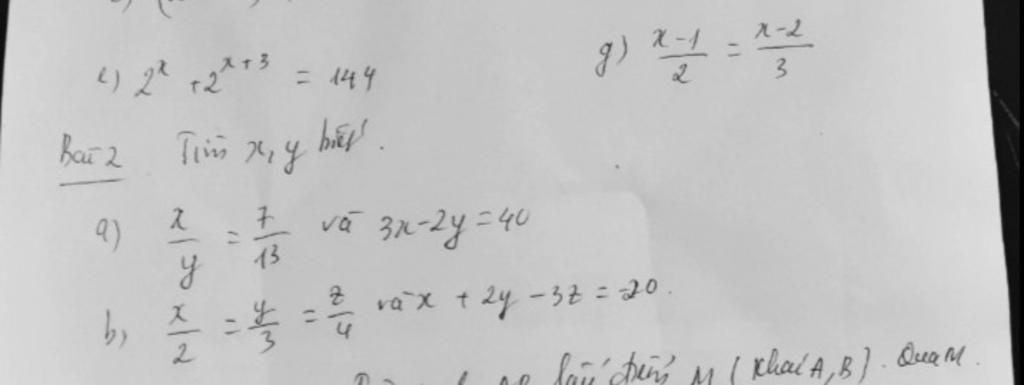 e) 2^x + 2^{x+3} = 144
g) \frac{x-1}{2} = \frac{x-2}{3}
Bài 2 Tìm x, y biết.
a) \frac{x}{y} = \frac{7}{13} và 3x-2y = 40
b, \frac{x}{2} = \frac{y}{3} = \frac{z}{4} và x + 2y - 3z = -20.
lấy điểm M (khác A, B). Qua M.